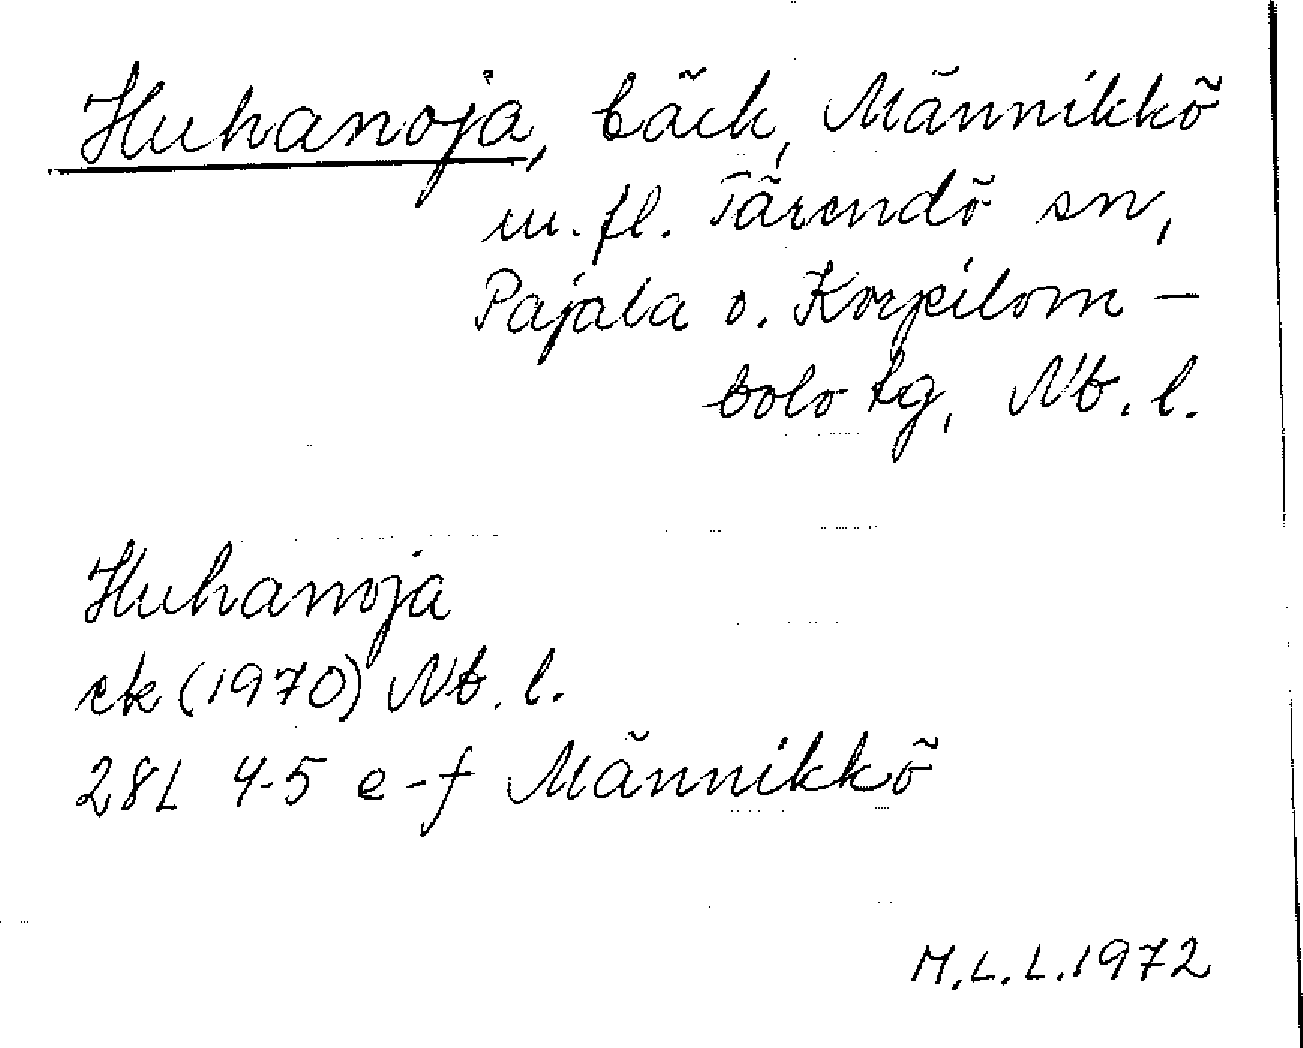 Huhanoja, bäck, Männikkö
m.fl. Tärendö sn,
Pajala o. Korpilom-
bolo tg, Nb. l.
Huhanoja
ek (1970) Nb. l.
28L 4-5 e-f Männikkö
M.L.L. 1972